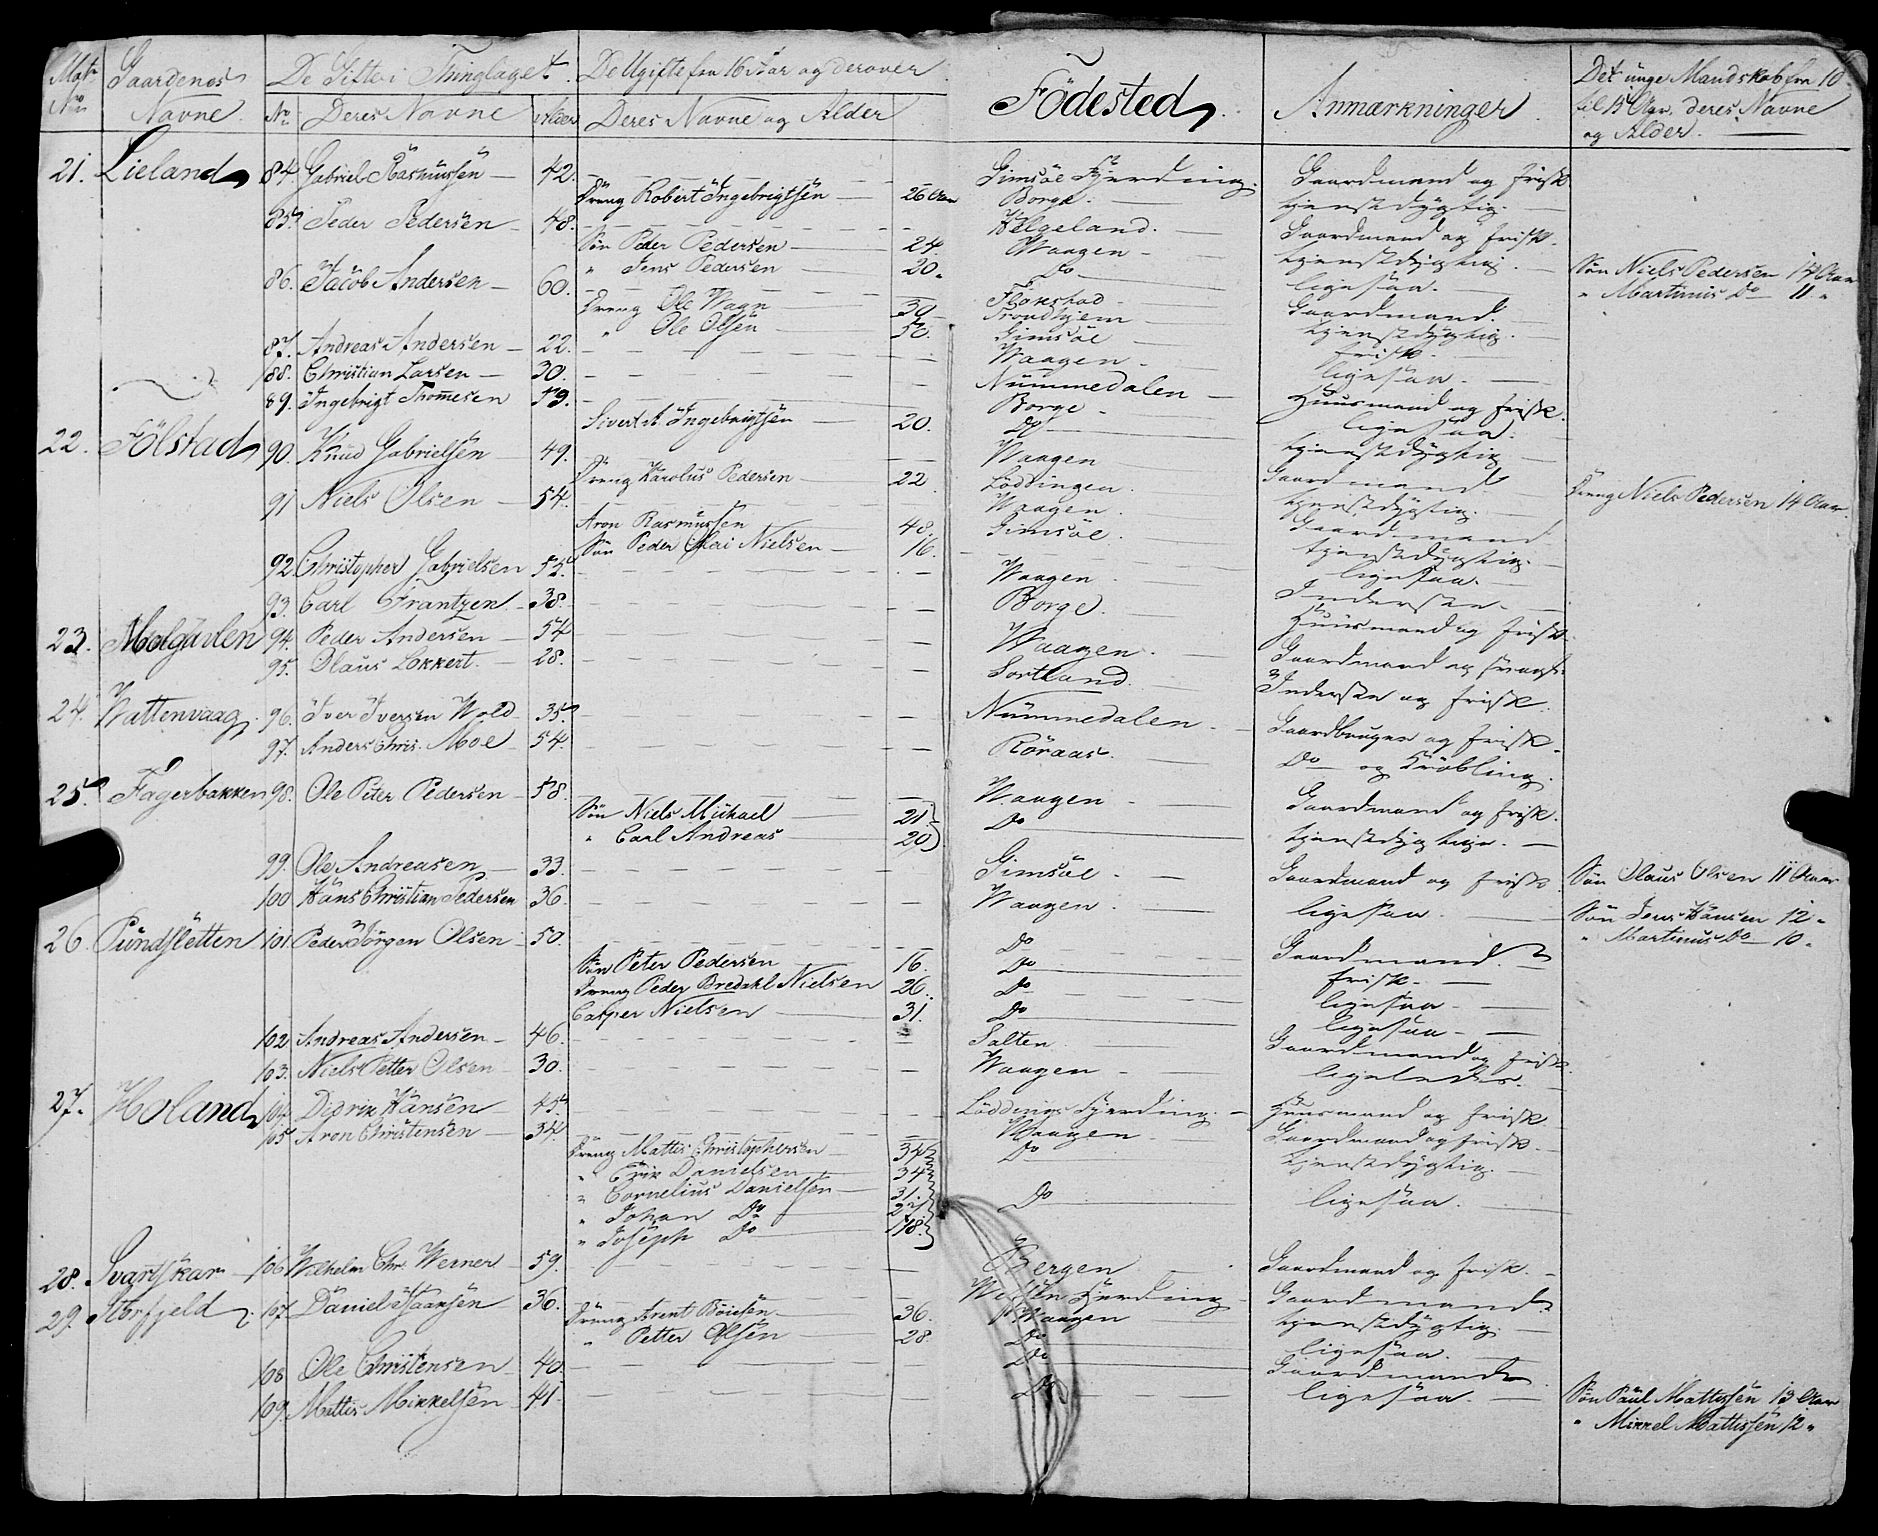 Mat: No: Gaardenes Navne. De Gifte i Thinglaget. De Ugifte fra 16 Aar og derover Födested. Anmærkninger Det unge Mandskab fra 10
No: Deres Navne Alder Deres Navne og Alder til 15 Aar, deres Navne
og Alder.
21. Lieland 84. Gabriel Rasmussen 42. Gimsöe Fjerding. Gaardmand og frisk
Dreng Robert Ingebrigtsen 26 Aar Borge. tjenstdygtig.
85. Peder Pedersen 48. Helgeland. Gaardmand og frisk.
Sön Peder Pedersen 24. Waagen tjenstdygtig.
" Jens Pedersen 20. Do ligesaa. Sön Niels Pedersen 14 Aar
86. Jacob Andersen 60. Flakstad Gaardmand. " Martinus Do 11 "
Dreng Ole Wagn 30 Trondhjem tjenstdygtig.
" Ole Olsen 50. Gimsöe frisk.
87. Andreas Andersen 22. Waagen ligesaa.
88. Christian Larsen 30. Nummedalen Huusmand og frisk.
89. Ingebrigt Thomesen 59. Borge ligesaa.
Sivert A Ingebrigtsen 20. Do tjenstdygtig
22. Fölstad 90. Knud Gabrielsen 49. Waagen Gaardmand
Dreng Karolus Pedersen 22. Lödingen. tjenstdygtig. Dreng Niels Pedersen 14 Aar.
91 Niels Olsen 54. Waagen. Gaardmand
Aron Rasmussen 48. Gimsöe. tjenstdygtig.
Sön Peder Nielsen 16. ligesaa.
92 Christopher Gabrielsen 52. Waagen Inderste.
93. Carl Frantzen 38. Borge. Huusmand og frisk.
23. Molgavlen 94. Peder Andersen 54 Waagen. Gaardmand og
95. Olaus Lokkert. 28. Sortland. Inderste og frisk.
24. Wattenvaag. 96. Iver Iversen Wold 35. Nummedalen. Gaardbruger og frisk.
97. Anders Chris. Moe 54. Röraas. Do og Kröbling.
25. Fagerbakken 98. Ole Peter Pedersen 58. Waagen Gaardmand og frisk.
Sön Niels Michael 21 Do tjenstdygtige.
" Carl Andreas 20
99. Ole Andreasen 33. Gimsöe Gaardmand og frisk Sön Olaus Olsen 11 Aar
100 Hans Christian Pedersen 36. Waagen. ligesaa Sön Jens Hansen 12 "
26. Pundsletten 101 Peder Jörgen Olsen 50. Do Gaardmand " Martinus Do 10 "
Sön Peter Pedersen 16. Do frisk.
Dreng Peder Bredahl Nielsen 26. Do ligesaa
Casper Nielsen 31. Do ligesaa
102 Andreas Andersen 46. Salten Gaardmand og frisk
103. Niels Petter Olsen 30. Waagen ligeledes.
27. Holand 104. Didrik Hansen 45. Löddings Fjerding. Huusmand og frisk
105 Aron Christensen 34. Waagen Gaardmand og frisk.
Dreng Mattis Christophersen 34 Do tjenstdygtig.
" Erik Danielsen 34
" Cornelius Danielsen 31. Do ligesaa.
" Johan Do 21
" Joseph Do 18.
28. Svartskar 106 Wilhelm Chr. Werner 59. Bergen Gaardmand og frisk.
29. Storfjeld 107. Daniel Isaansen 36. Fjerding Gaardmand
Dreng Arent Böiesen 36. Waagen tjenstdygtig.
" Petter Olsen 28. Do ligesaa.
108 Ole Christensen 40. Do Gaardmand
109. Mattis Mikkelsen 41. Do ligesaa. Sön Paul Mattissen 13 Aar
" Mikkel Mattissen 12 "